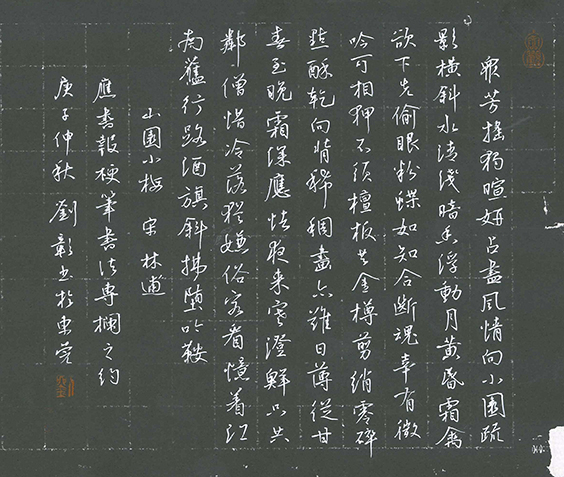 眾芳搖獨暄妍占盡風情向小園疏
影橫斜水清淺暗香浮動月黃昏霜禽
欲下先偷眼粉蝶如知合斷魂幸有微
吟可相狎不須檀板共金樽剪綃零碎
點酥乾向背稀稠畫亦難日薄從甘
春至晚霜深應怯夜來寒澄鮮只共
鄰僧惜冷落猶嫌俗客看憶着江
南舊行路酒旗斜拂墮吟鞍
山園小梅 宋 林逋
應書報硬筆書法專欄之約
庚子仲秋 劉彰书於東莞